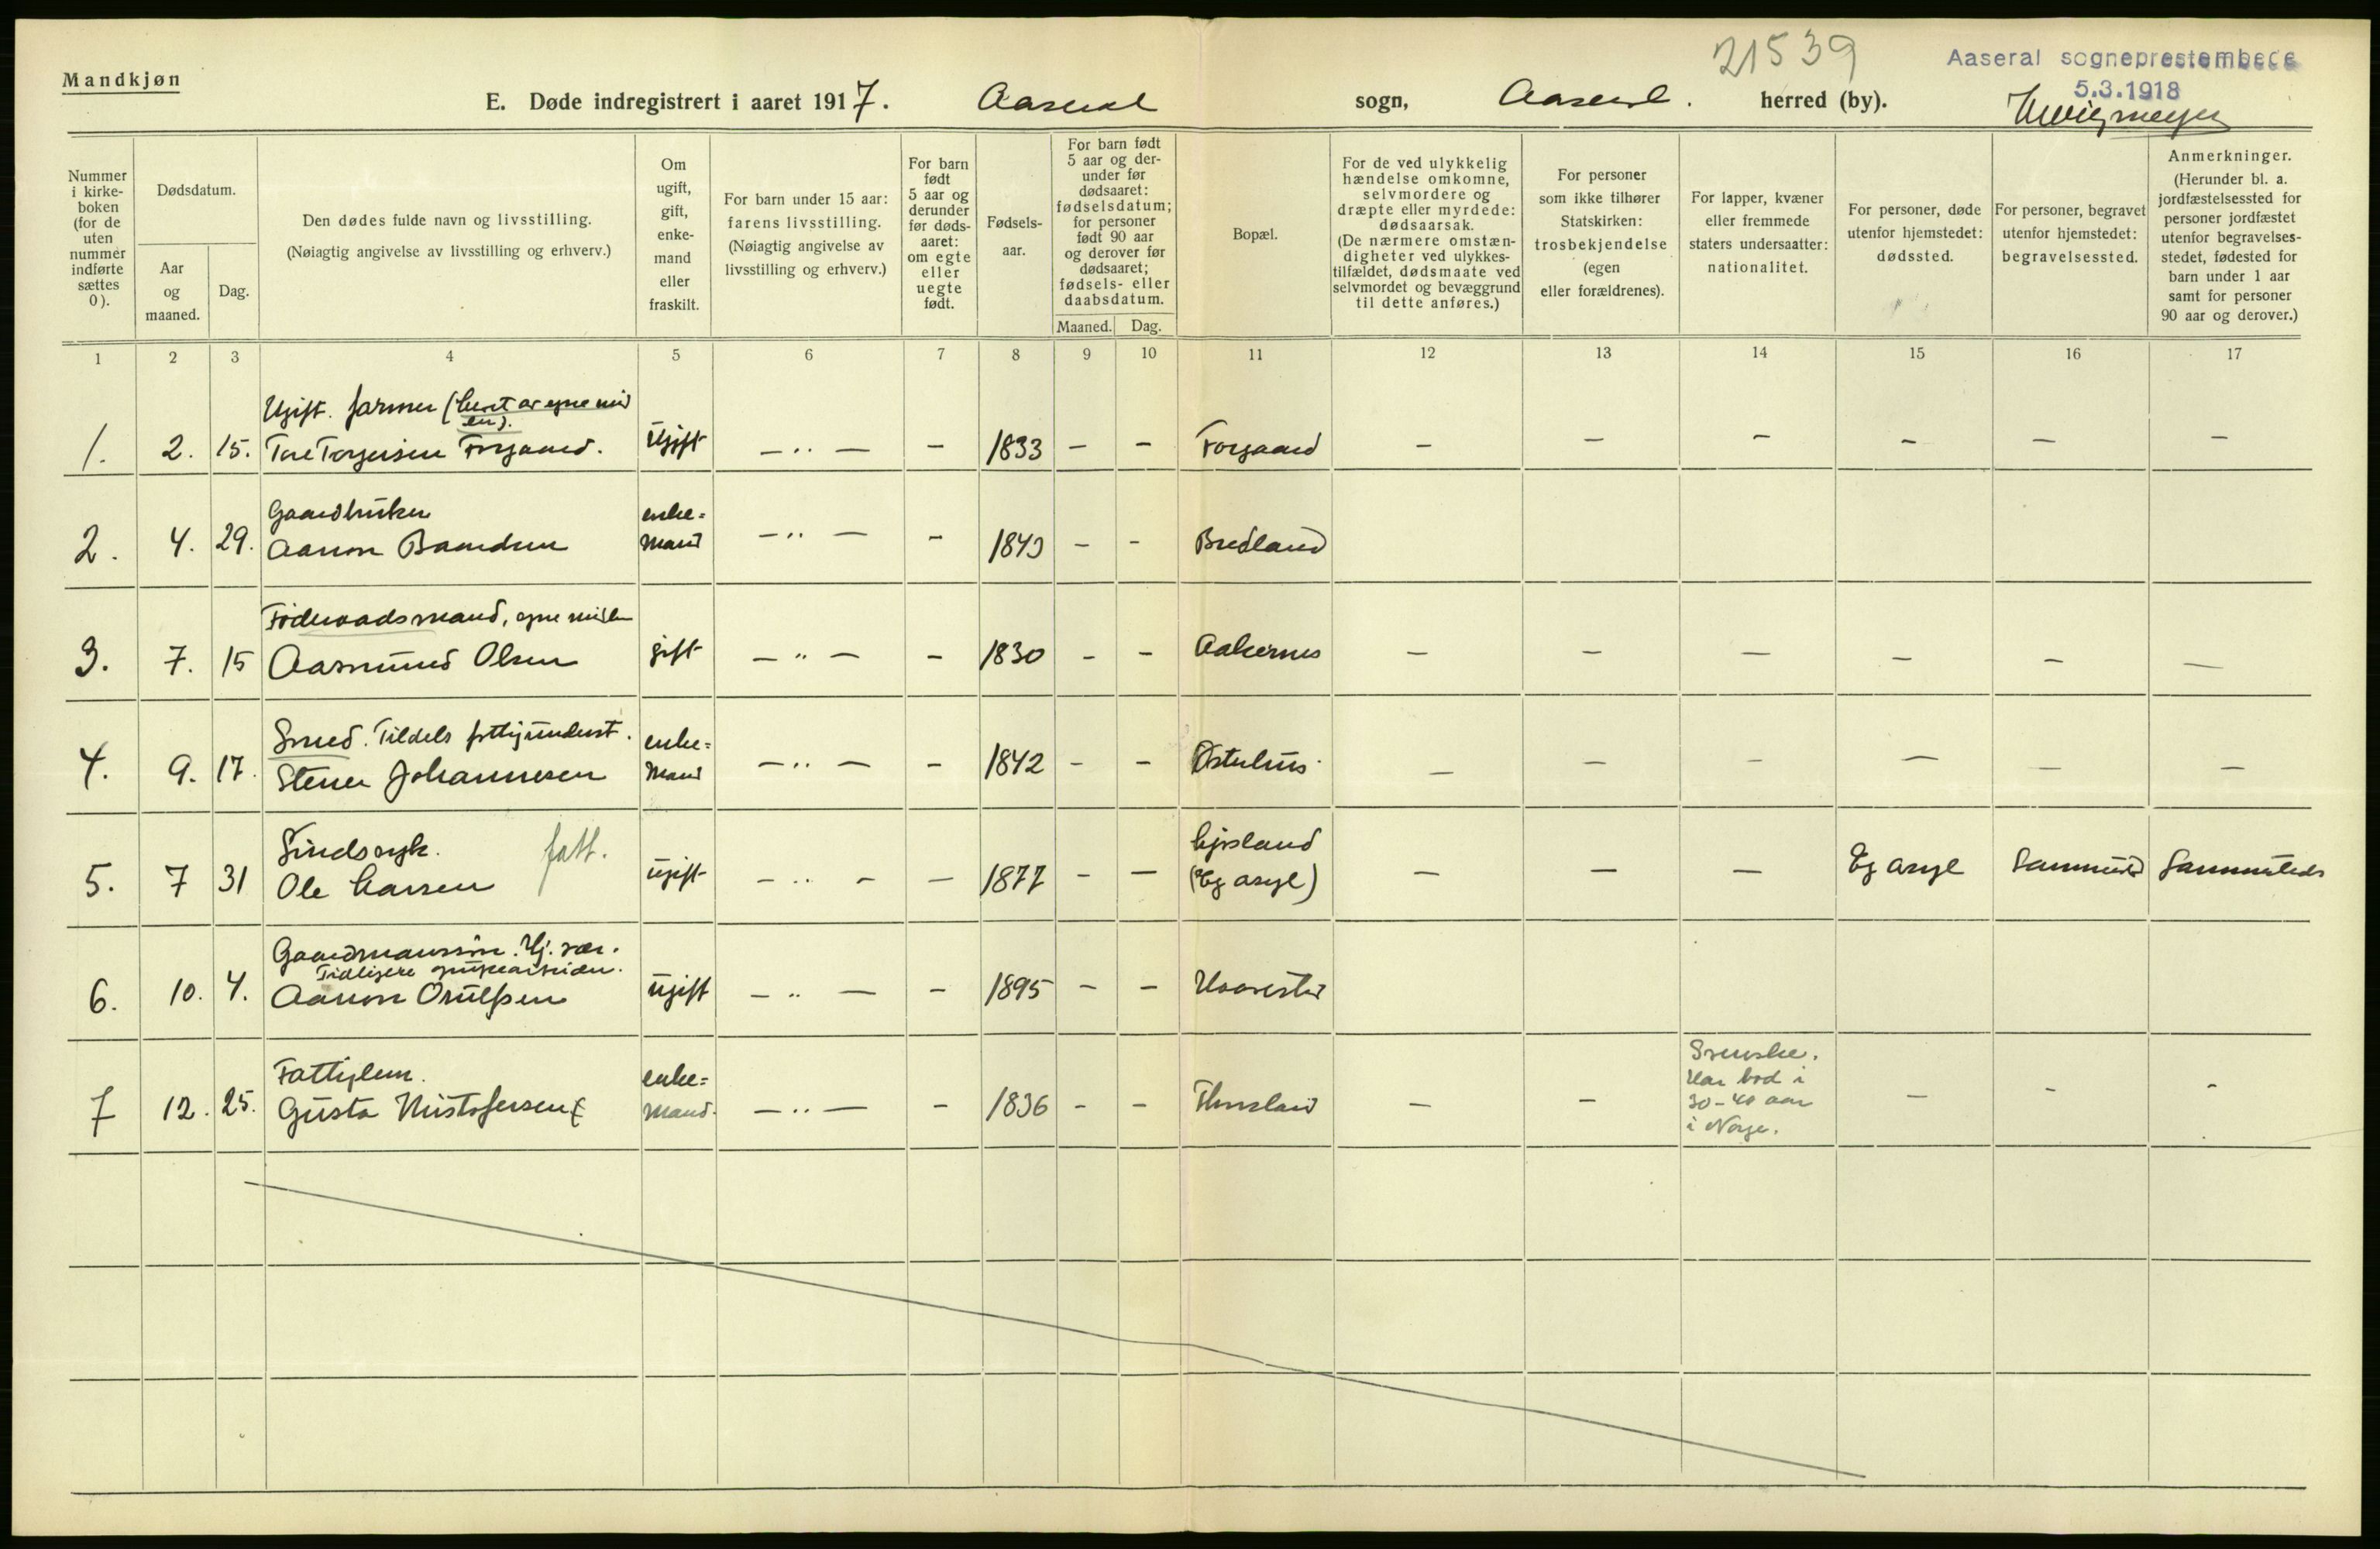 Mandkjøn
21539
Aaseral sogneprestembede
5.3.1918
E. Døde indregistrert i aaret 1917. Aaseral sogn, Aaseral. herred (by).
Nummer
i kirke-
boken
(for de
uten
nummer
indførte
sættes
0).
Dødsdatum.
Aar
og
maaned.
Dag.
Den dødes fulde navn og livsstilling.
(Nøiagtig angivelse av livsstilling og erhverv.)
Om
ugift,
gift,
enke-
mand
eller
fraskilt.
For barn under 15 aar:
farens livsstilling.
(Nøiagtig angivelse av
livsstilling og erhverv.)
For barn
født
5 aar og
derunder
før døds-
aaret:
om egte
eller
uegte
født.
Fødsels-
aar.
For barn født
5 aar og der-
under før
dødsaaret:
fødselsdatum;
for personer
født 90 aar
og derover før
dødsaaret;
fødsels- eller
daabsdatum.
Maaned. Dag.
Bopæl.
For de ved ulykkelig
hændelse omkomne,
selvmordere og
dræpte eller myrdede:
dødsaarsak.
(De nærmere omstæn-
digheter ved ulykkes-
tilfældet, dødsmaate ved
selvmordet og bevæggrund
til dette anføres.)
For personer
som ikke tilhører
Statskirken:
trosbekjendelse
(egen
eller forældrenes).
For lapper, kvæner
eller fremmede
staters undersaatter:
nationalitet.
For personer, døde
utenfor hjemstedet:
dødssted.
For personer, begravet
utenfor hjemstedet:
begravelsessted.
Anmerkninger.
(Herunder bl. a.
jordfæstelsessted for
personer jordfæstet
utenfor begravelses-
stedet, fødested for
barn under 1 aar
samt for personer
90 aar og derover.)
1 2 3 4 5 6 7 8 9 10 11 12 13 14 15 16 17
Ugift. farmer (levet av egne mid
ler).
1. 2. 15. Tore Torgeirsen Forgaard. Ugift — ·· — – 1833 – – Forgaard – – – – – –
Gaardbruker
2. 4. 29. Aanon Baardsen enke=
mand — ·· — – 1843 – – Bredland
Føderaadsmand, egne midler
3. 7. 15 Aasmund Olsen gift — ·· — – 1830 – – Aakernes – – – – – –
Smed. Tildels fattigunderst.
4. 9. 17. Stener Johannesen enke=
mand — ·· — – 1842 – – Østulius – – – – – –
Sindssyk. fatt.
5. 7 31 Ole Larsen ugift — ·· – – 1877 – – Ljosland
(Eg asyl) – – – Eg asyl Sammested Sammesteds
Gaardmandssøn. Hj. vær.
Tidligere grubearbeider.
6. 10. 4. Aanon Osulfsen ugift — ·· — – 1895 – –
Fattiglem.
7 12. 25. Gusta Kristofersen enke=
mand. — ·· — – 1836 – – – –
Svenske.
Har bod i
30–40 aar
i Norge.
– – –